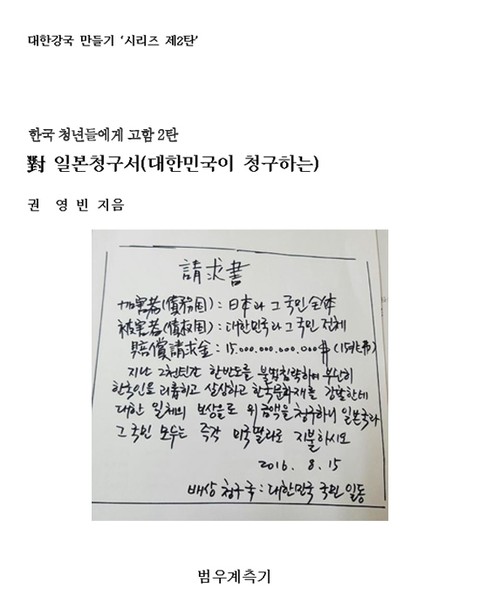 대한강국 만들기 '시리즈 제2탄'
한국 청년들에게 고함 2탄
對 일본청구서(대한민국이 청구하는)
권 영 빈 지음
請求書
加害者(債務国) : 日本과 그 국민 全体
被害者(債权国) : 대한민국과 그 국민 전체
賠償請求金 : 15.000.000.000.000
지난 2천년간 한반도를 불법침략하여 무단히
한국인을 괴롭히고 살상하고 한국문화재를 강탈한데
대한 일체의 보상으로 위 금액을 청구하니 일본국과
그 국민 모두는 즉각 미국딸라로 지불하시오
2016. 8. 15
배상 청구국 : 대한민국 국민 일동
범우계측기